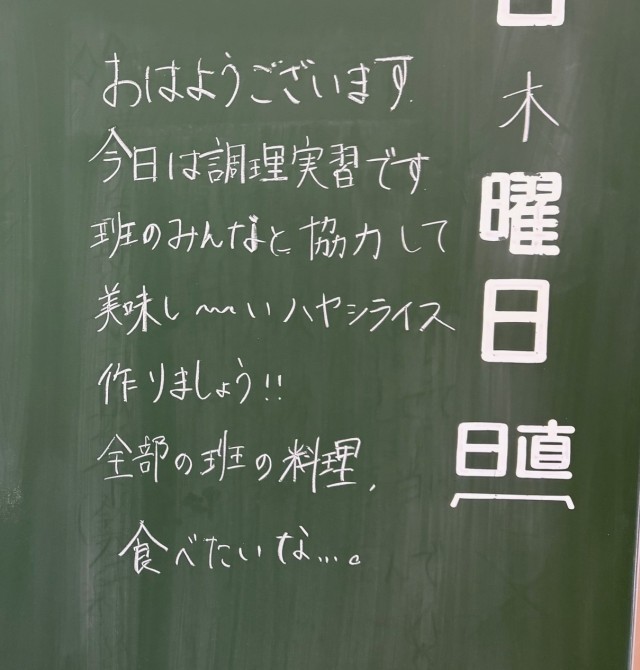 おはようございます.
今日は調理実習です
班のみんなと協力して
美味し〜〜いハヤシライス
作りましょう!!
全部の班の料理,
食べたいな...。
日
木
曜
日
日直